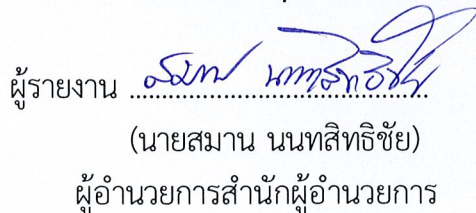 ผู้รายงาน สมาน นนทสิทธิชัย
(นายสมาน นนทสิทธิชัย)
ผู้อำนวยการสำนักผู้อำนวยการ